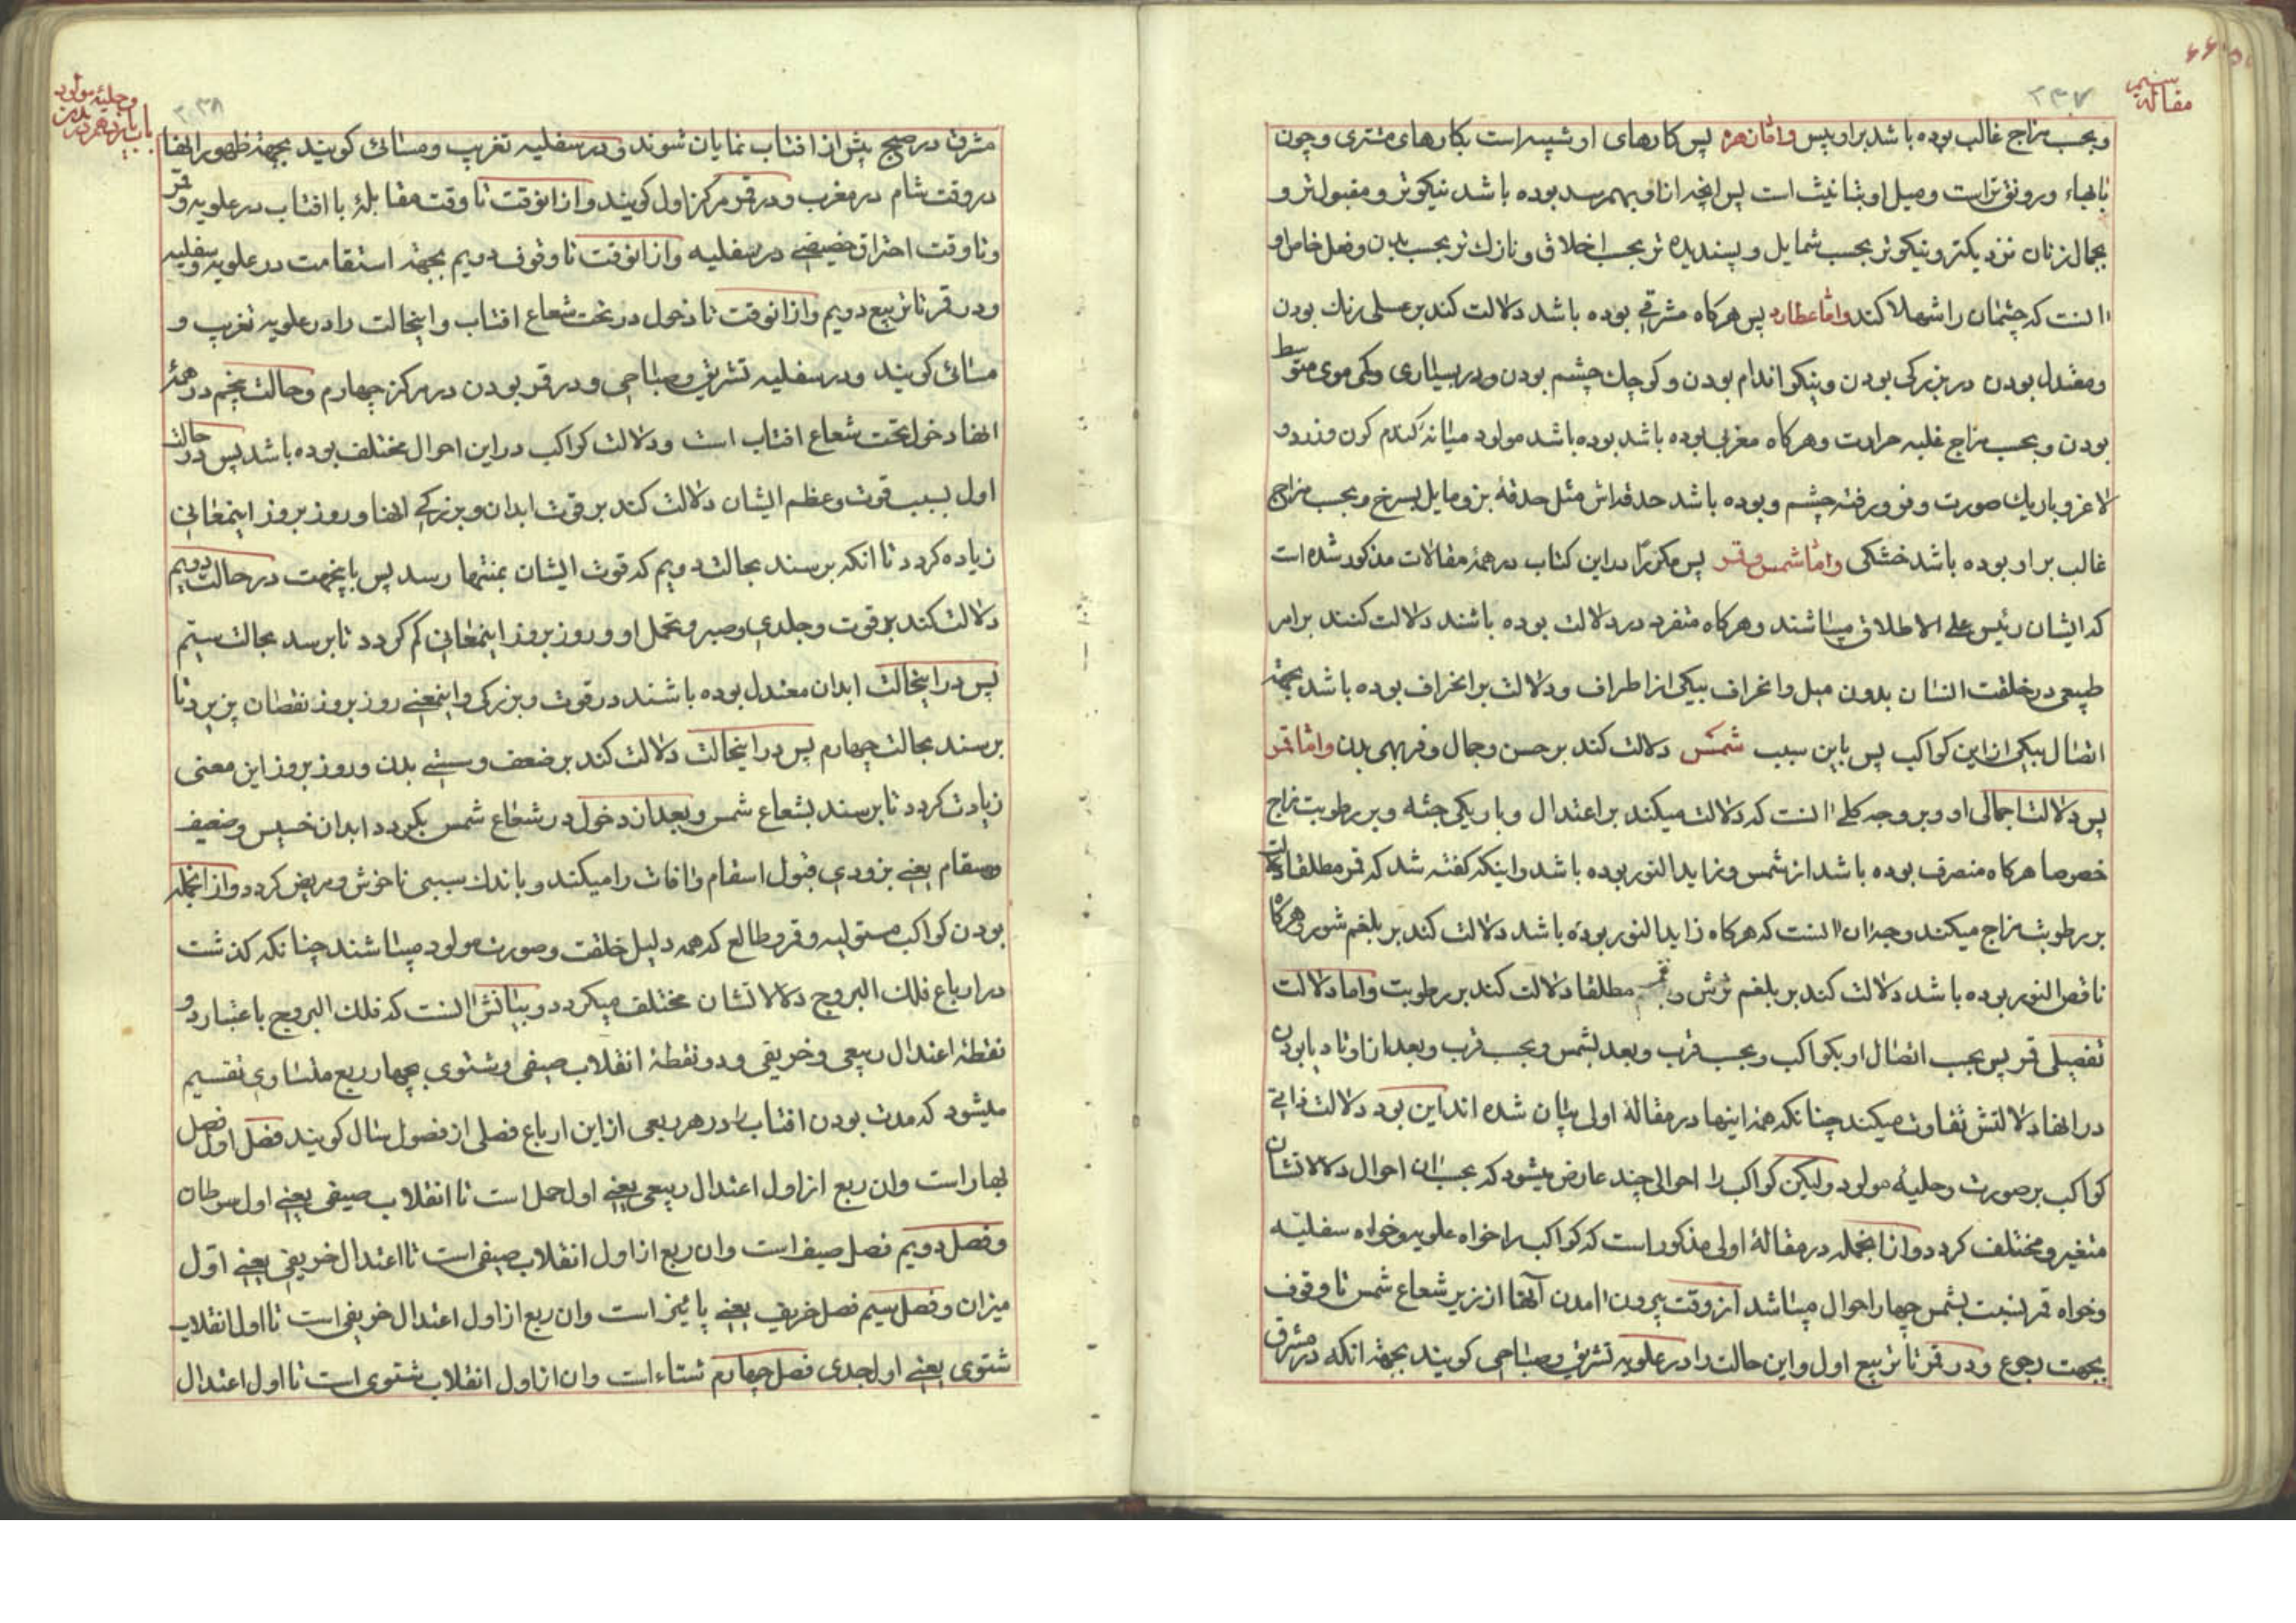 مقالهٔ سیم
۳۳۷
وبحسب مزاج غالب بوده باشد بر او یبس واما زهره پس کارهای او شبیه است بکارهای مشتری وچون
بابهاء ورونق تر است ومیل او بتانیث است پس انچه از او بهم رسد بوده باشد نیکوتر ومقبول تر و
بجمال زنان نزدیکتر ونیکوتر بحسب شمایل وپسندیده تر بحسب اخلاق ونازك تر بحسب بدن وفعل خاص او
انست که چشمان را شهلا کند واما عطارد پس هرکاه مشرقی بوده باشد دلالت کند بر عسلی رنك بودن
ومعتدل بودن در بزرکی بودن ونیکو اندام بودن وکوچك چشم بودن ودر بسیاری وکمی موی متوسط
بودن وبحسب مزاج غلبه حرارت وهرکاه مغربی بوده باشد بوده باشد مولود میانه کندم کون وزرد و
لاغر وباریك صورت وفرو رفته چشم وبوده باشد حدقه اش مثل حدقهٔ بز ومایل بسرخ وبحسب مزاج
غالب بر او بوده باشد خشکی واما شمس وقمر پس مکررًا در این کتاب در همهٔ مقالات مذکور شده است
که ایشان رئیس علی الاطلاق میباشند وهرکاه منفرد در دلالت بوده باشند دلالت کنند بر امر
طبیعی در خلقت انسان بدون میل وانحراف بیکی از اطراف ودلالت بر انحراف بوده باشد بجهة
اتصال بیکی از این کواکب پس باین سبب شمس دلالت کند بر حسن وجمال وفربهی بدن واما قمر
پس دلالت اجمالی او وبر وجه کلی انست که دلالت میکند بر اعتدال وباریکی جثه وبر رطوبت مزاج
خصوصا هرکاه منصرف بوده باشد از شمس وزاید النور بوده باشد واینکه کفته شد که قمر مطلقا دلالت
بر رطوبت مزاج میکند وجه ان انست که هرکاه زاید النور بوده باشد دلالت کند بر بلغم شور وهرکاه
ناقص النور بوده باشد دلالت کند بر بلغم ترش مطلقا دلالت کند بر رطوبت واما دلالت
تفصیلی قمر پس بحسب اتصال او بکواکب وبحسب قرب وبعد بشمس وبحسب قرب وبعد از اوتاد یا بودن
در انها دلالتش تفاوت میکند چنانکه همه اینها در مقالهٔ اولی بیان شده اند این بود دلالت ذاتی
کواکب بر صورت وحلیهٔ مولود ولیکن کواکب را احوالی چند عارض میشود که بحسب ان احوال دلالاتشان
متغیر ومختلف کردد واز انجمله در مقالهٔ اولی مذکور است که کواکب را خواه علویه وخواه سفلیه
وخواه قمر نسبت بشمس چهار احوال میباشد از وقت بیرون امدن آنها از زیر شعاع شمس تا وقوف
بجهت رجوع ودر قمر تا تربیع اول واین حالت را در علویه تشریق وصباحی کویند بجهة انکه در مشرق
باب یازدهم در بدن
وحلیهٔ مولود
۳۳۸
مشرق در صبح پیش از افتاب نمایان شوند ودر سفلیه تغریب ومسائی کویند بجهة ظهور انها
در وقت شام در مغرب ودر قمر مرکز اول کویند واز انوقت تا وقت مقابلهٔ با افتاب در علویه وقمر
وتا وقت احتراق حضیضی در سفلیه واز انوقت تا وقوف دویم بجهة استقامت در علویه وسفلیه
ودر قمر تا تربیع دویم واز انوقت تا دخول در تحت شعاع افتاب واینحالت را در علویه تغریب و
مسائی کویند ودر سفلیه تشریق وصباحی ودر قمر بودن در مرکز چهارم وحالت پنجم در همهٔ
انها دخول تحت شعاع افتاب است ودلالت کواکب در این احوال مختلف بوده باشد پس در حالت
اول بسبب قوت وعظم ایشان دلالت کند بر قوت ابدان وبزرکی انها وروز بروز اینمعانی
زیاده کردد تا انکه برسند بحالت دویم که قوت ایشان بمنتها رسد پس باینجهت در حالت دویم
دلالت کند بر قوت وجلدی وصبر وتحمل او وروز بروز اینمعانی کم کردد تا برسد بحالت سیم
پس در اینحالت ابدان معتدل بوده باشند در قوت وبزرکی واینمعنی روز بروز نقصان پزیرد تا
برسند بحالت چهارم پس در اینحالت دلالت کند بر ضعف وسستی بدن وروز بروز این معنی
زیادت کردد تا برسند بشعاع شمس وبعد از دخول در شعاع شمس بکردد ابدان خسیس وضعیف
ومسقام یعنی بزودی قبول اسقام وافات را میکند وباندك سببی ناخوش ومریض کردد واز انجمله
بودن کواکب مستولیه وقمر وطالع که همه دلیل خلقت وصورت مولود میباشند چنانکه کذشت
در ارباع فلك البروج دلالاتشان مختلف میکردد وبیانش انست که فلك البروج باعتبار دو
نقطهٔ اعتدال ربیعی وخریفی ودو نقطهٔ انقلاب صیفی وشتوی بچهار ربع متساوی تقسیم
میشود که مدت بودن افتاب را در هر ربعی از این ارباع فصلی از فصول سال کویند فصل اول فصل
بهار است وان ربع از اول اعتدال ربیعی یعنی اول حمل است تا انقلاب صیفی یعنی اول سرطان
وفصل دویم فصل صیف است وان ربع از اول انقلاب صیفی است تا اعتدال خریفی یعنی اول
میزان وفصل سیم فصل خریف یعنی پائیز است وان ربع از اول اعتدال خریفی است تا اول انقلاب
شتوی یعنی اول جدی فصل چهارم شتاء است وان از اول انقلاب شتوی است تا اول اعتدال